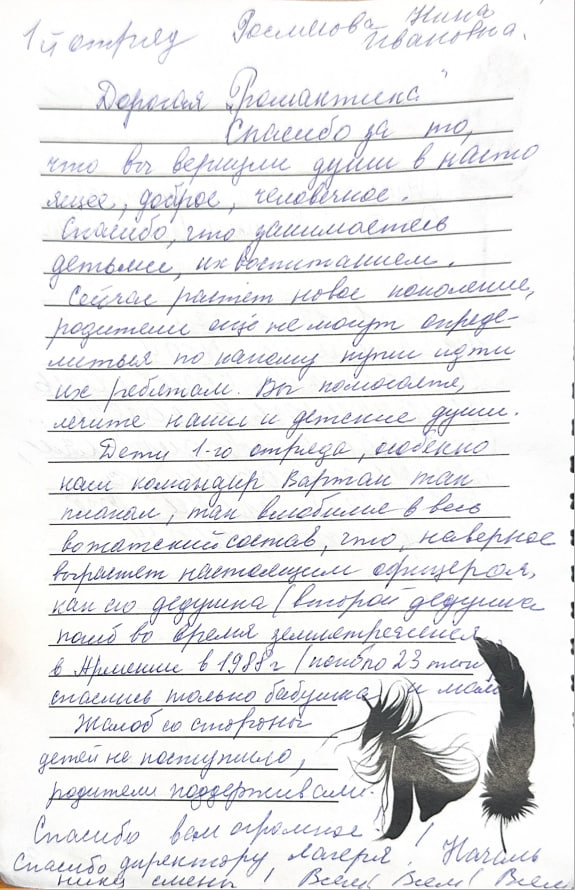 1й отряд Росликова Нина
Ивановна.
Дорогая "Романтика"
Спасибо за то,
что вы вернули души в насто
ящее, доброе, человечное.
Спасибо, что занимаетесь
детьми, их воспитанием.
Сейчас растёт новое поколение,
родители ещё не могут опреде-
литься по какому пути идти
их ребятам. Вы помогаете,
лечите наши и детские души.
Дети 1-го отряда, особенно
наш командир Вартан так
плакал, так влюбился в весь
вожатский состав, что, наверное
вырастет настоящим офицером,
как его дедушка (второй дедушка
погиб во время землетрясения
в Армении в 1988г (погибло 23 тыс,
спаслись только бабушка и мама
Жалоб со стороны
детей не поступило,
родители поддерживали.
Спасибо вам огромное !
Спасибо директору лагеря, Началь
нику смены, Всем! Всем! Всем